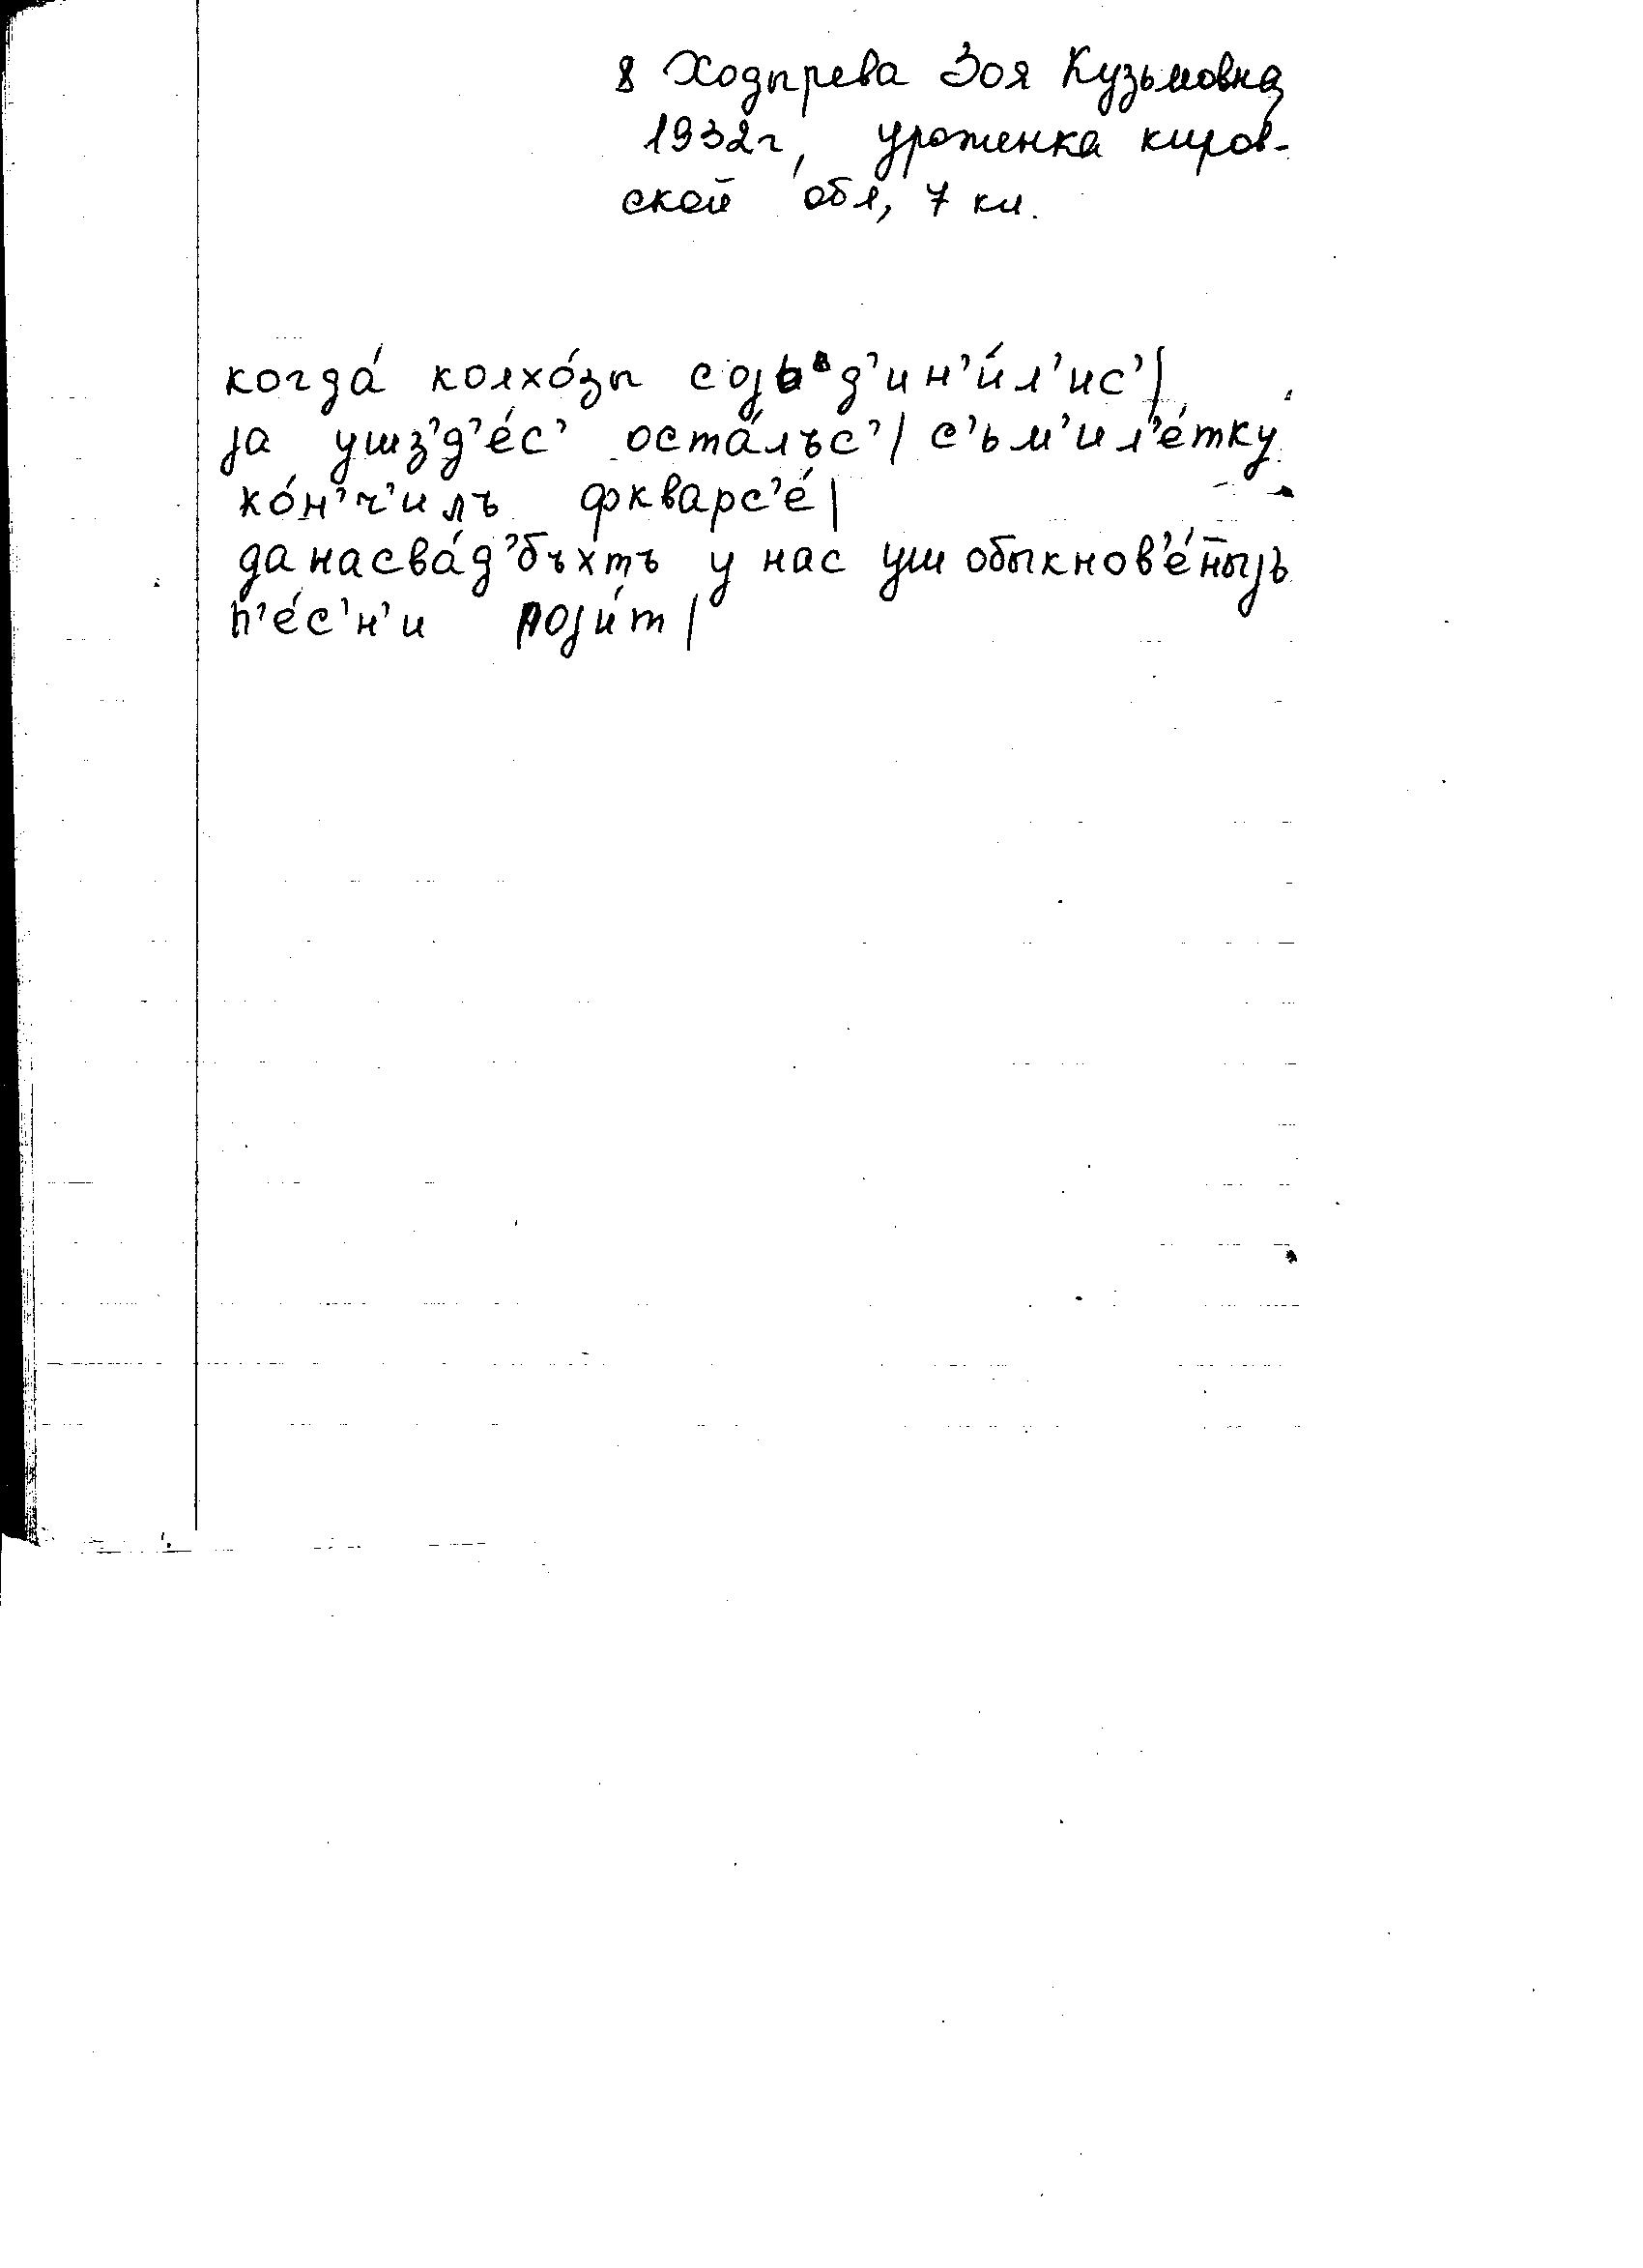 8 Ходырева Зоя Кузьмовна
1932г, уроженка киров-
ской обл, 7 кл.
когда́ колхо́зы соjьᵊд’ин’и́л’ис’|
jа ушз’д’е́с’ оста́лъс’| с’ьм’ил’е́тку
ко́н’ч’илъ фкварс’е́|
да насва́д’бъхтъ у нас уш обыкнов’е́н̄ыjь
п’е́с’н’и поjи́т|